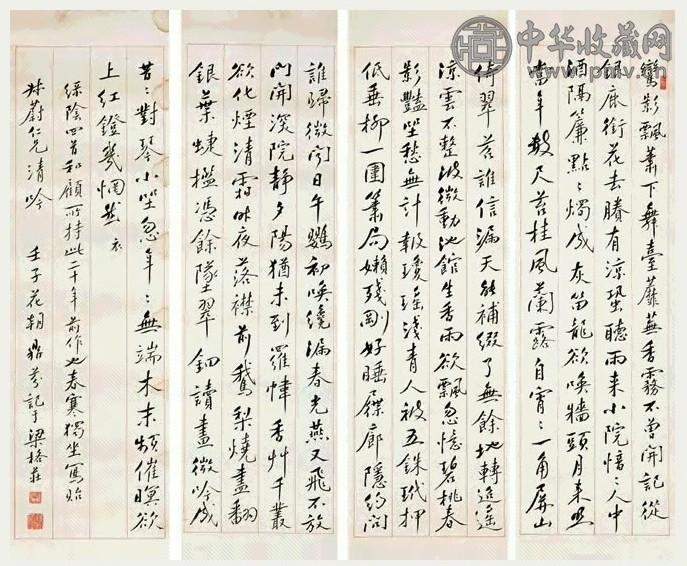 中华收藏网
鸞影飄蕭下舞臺蘼蕪香霧不曾開記從
銀床銜花去賸有涼蛩聽雨來小院愔〻人中
酒隔簾點〻燭成灰笛龍欲喚牆頭月來照
當年數尺苔桂風蘭露自宵〻一角屏山
倚翠苕誰信漏天能補綴了無餘地轉逍遙
涼雲不整波微動池館生香雨欲飄忽憶碧桃春
影豔坐愁無計報瓊瑤淺青人被五銖押
低垂柳一圍篝局嬾殘剛好睡屧廊隱約問
誰歸微聞日午鸚初喚繞漏春光燕又飛不放
開深院靜夕陽猶未到羅幃香艸千叢
欲化煙清霜昨夜落襟前鵝梨燒盡翻
銀葉蜨檻憑餘墜翠鈿讀畫微吟成
昔〻對琴小坐忽年〻無端木末頻催暝欲
上紅鐙幾惘然
綠陰四首和顧所持此二十年前作也春寒獨坐寫貽
叔蔚仁兄清吟 壬子花朝鼎芬記于梁格莊